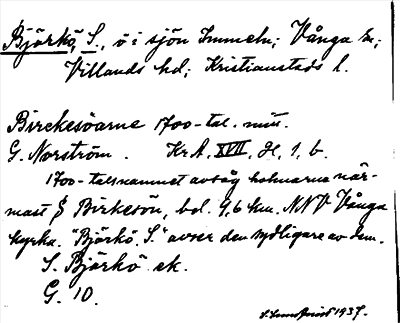 Björkö, S., ö i sjön Immeln; Vånga sn;
Villands hd; Kristianstads l.
Birckesöarne 1700-tal. mitt.
G. Norström. Kr.A, XVII, H, 1, b.
1700-talsnamnet avsåg holmarna när-
mast § Birkesön, bel. 9,6 km. NNV Vånga
kyrka. "Björkö. S." avser den sydligare av dem.
S. Björkö ek.
G. 10.
1937.